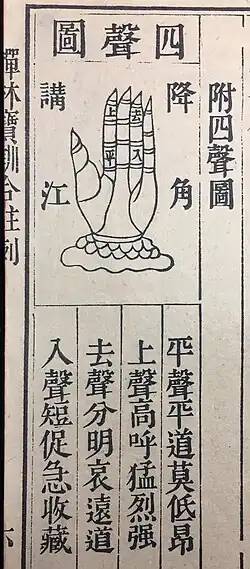 附四聲圖
四聲圖
上去
平入
講降
江角
平聲平道莫低昂
上聲高呼猛烈强
去聲分明哀遠道
入聲短促急收藏
禪林寶訓合註列
六